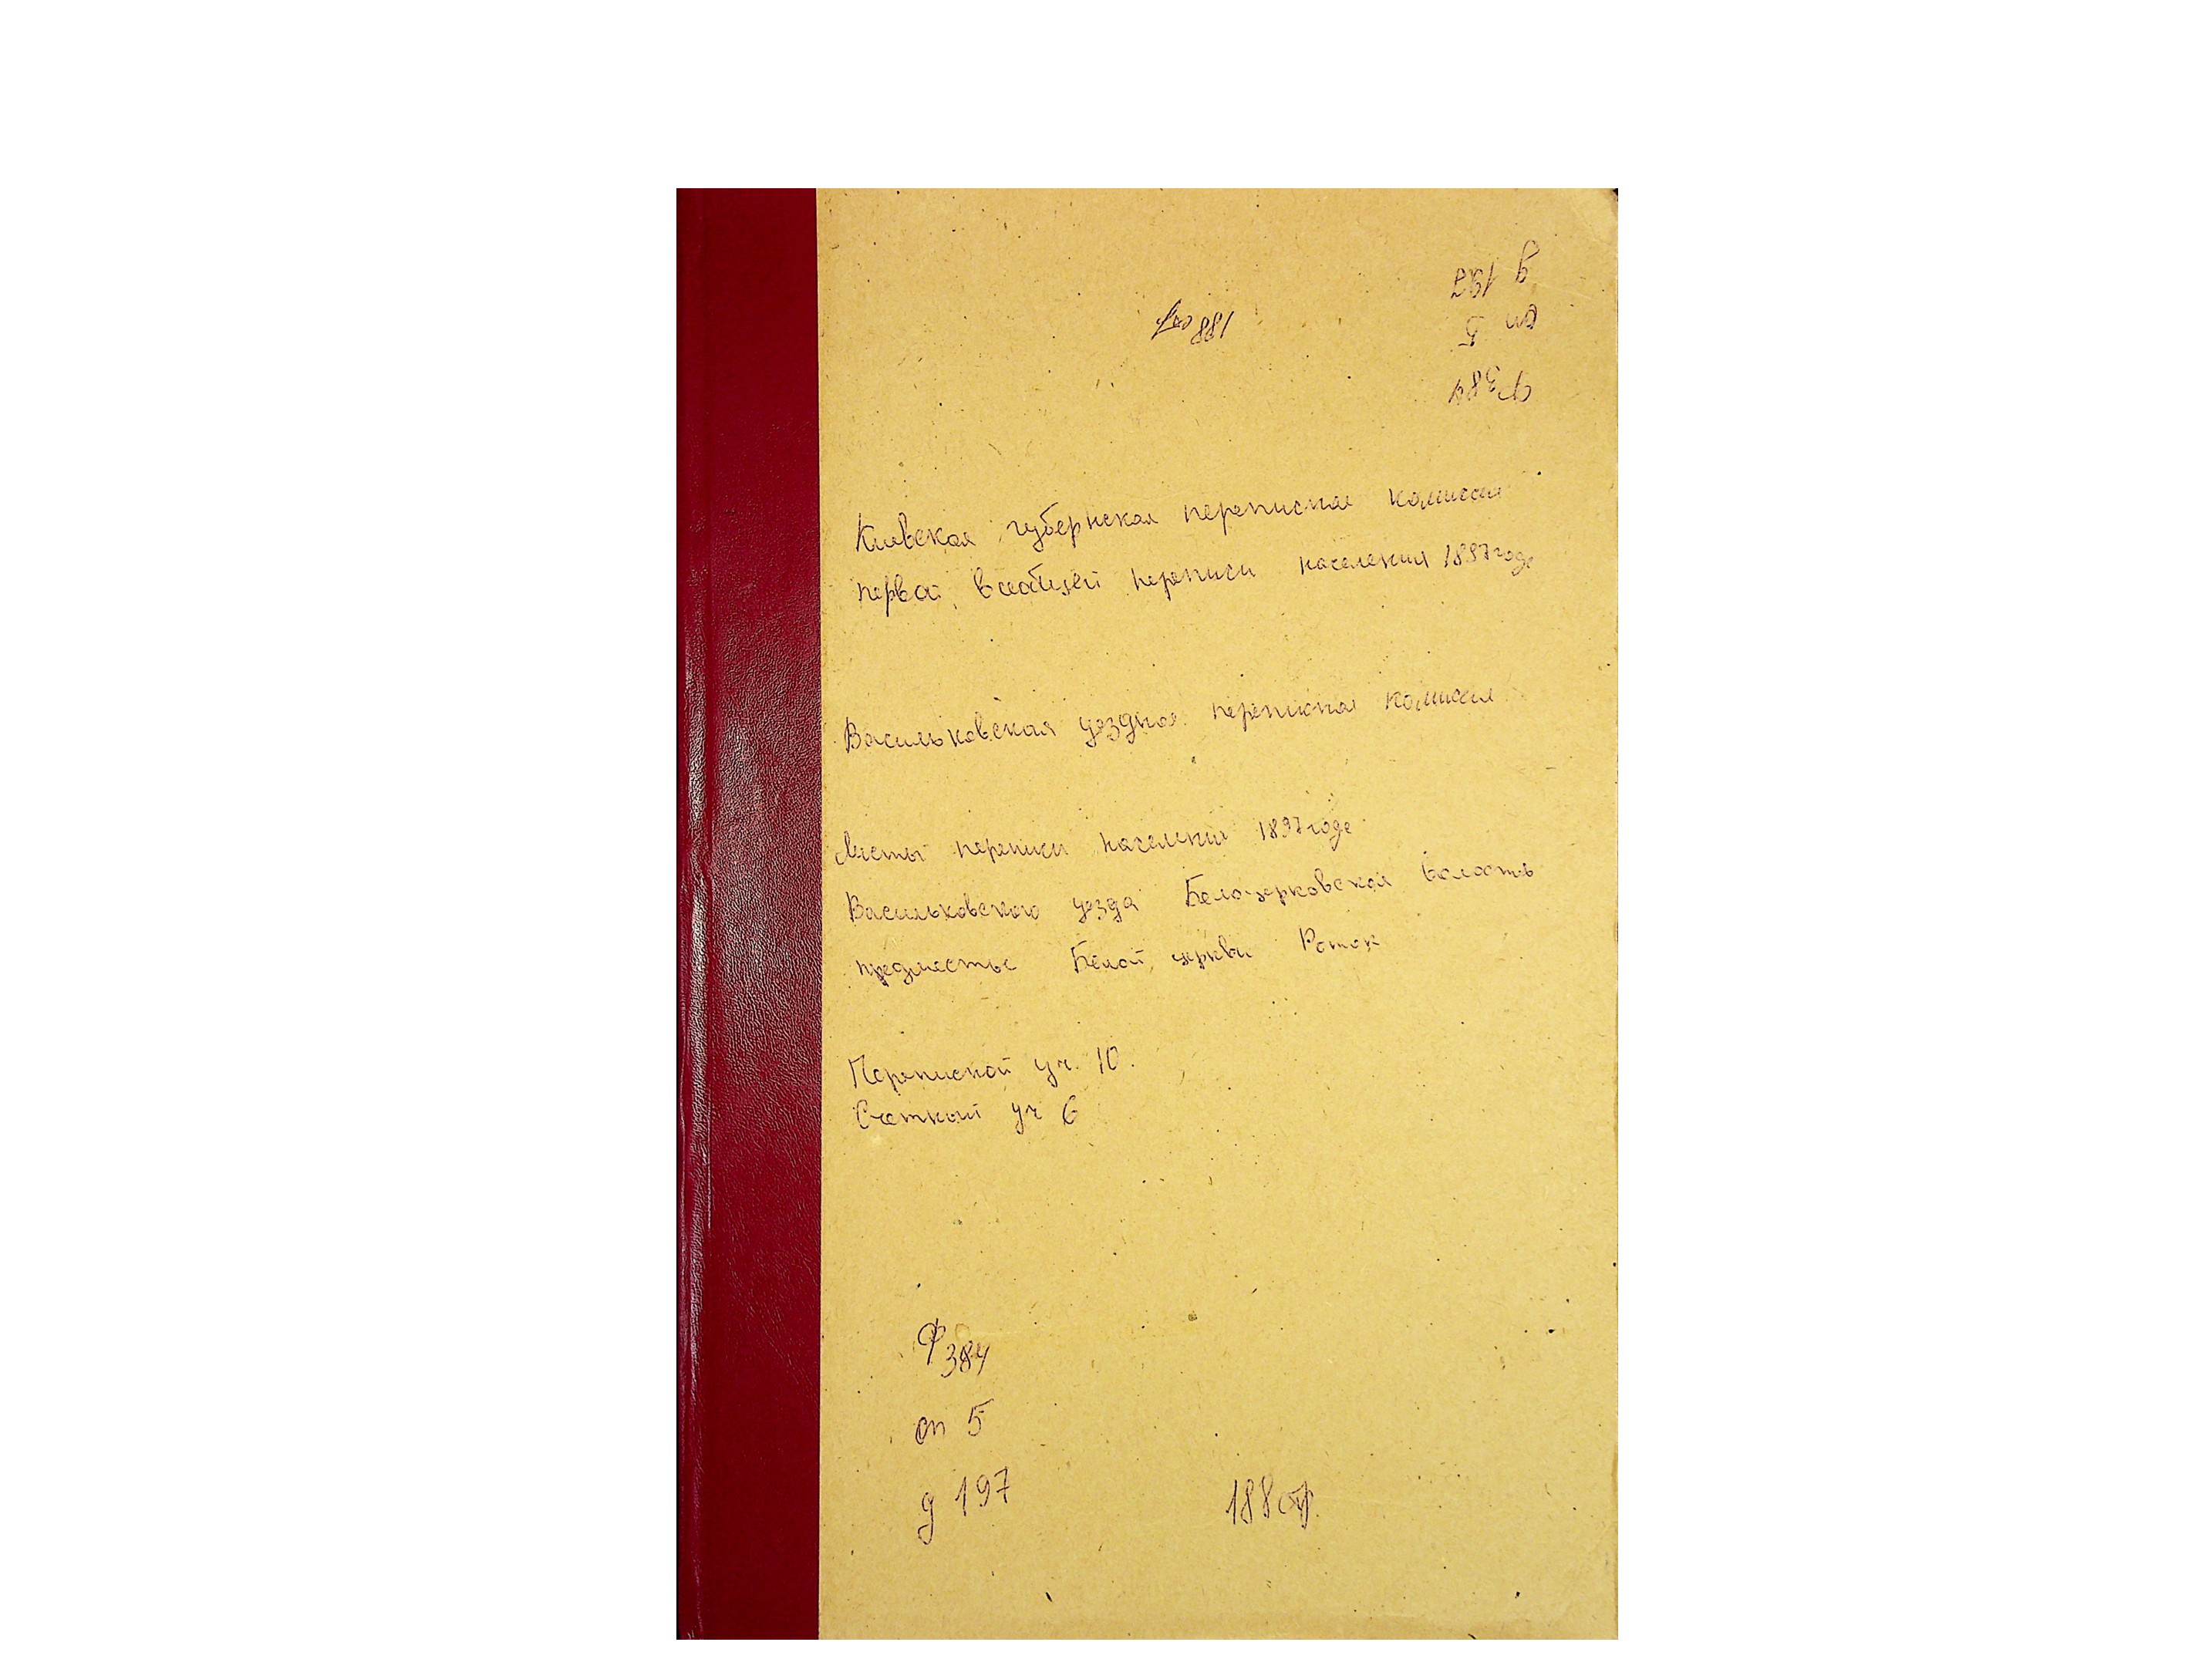 д 197
188 стр
оп 5
Ф 384
Киевская губернская переписная комиссия
первой всеобщей переписи населения 1897 года
Васильковская уездная переписная комиссия
Листы переписи населения 1897 года
Васильковского уезда Белоцерковская волость
предместье Белой церкви Роток
Переписной уч. 10.
Счетный уч 6
Ф 384
оп 5
д 197
188 стр.